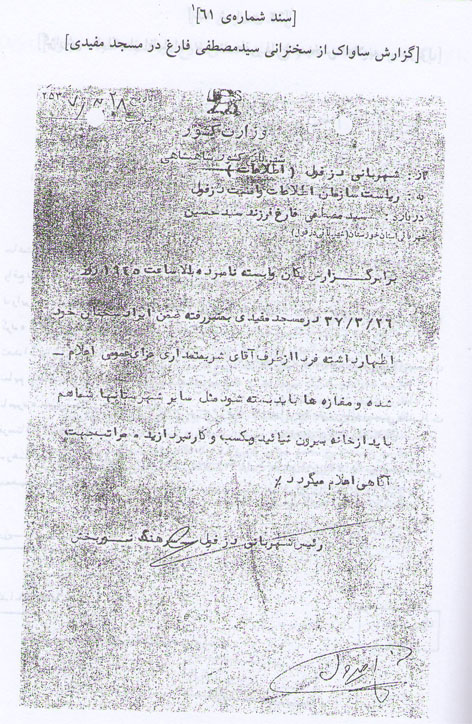 [سند شماره‌ی ۶۱]۱
[گزارش ساواک از سخنرانی سیدمصطفی فارغ در مسجد مفیدی]
وزارت کشور
شهربانی کشور شاهنشاهی
از: شهربانی دزفول (اطلاعات)
به: ریاست سازمان اطلاعات وامنیت دزفول
درباره: سید مصطفی فارغ فرزند سید حسین
برابر گزارش یگان وابسته نامبرده بالا ساعت ۱۹۴۵ روز
۳۷/۳/۲۶ در مسجد مفیدی بمنبر رفته ضمن ایراد سخنان خود
اظهار داشته فردا از طرف آقای شریعتمداری عزای عمومی اعلام
شده و مغازه ها باید بسته شود مثل سایر شهرستانها شما هم
باید از خانه بیرون نیائید و بکسب و کار نپردازید مراتب جهت
آگاهی اعلام میگردد
رئیس شهربانی دزفول سرهنگ